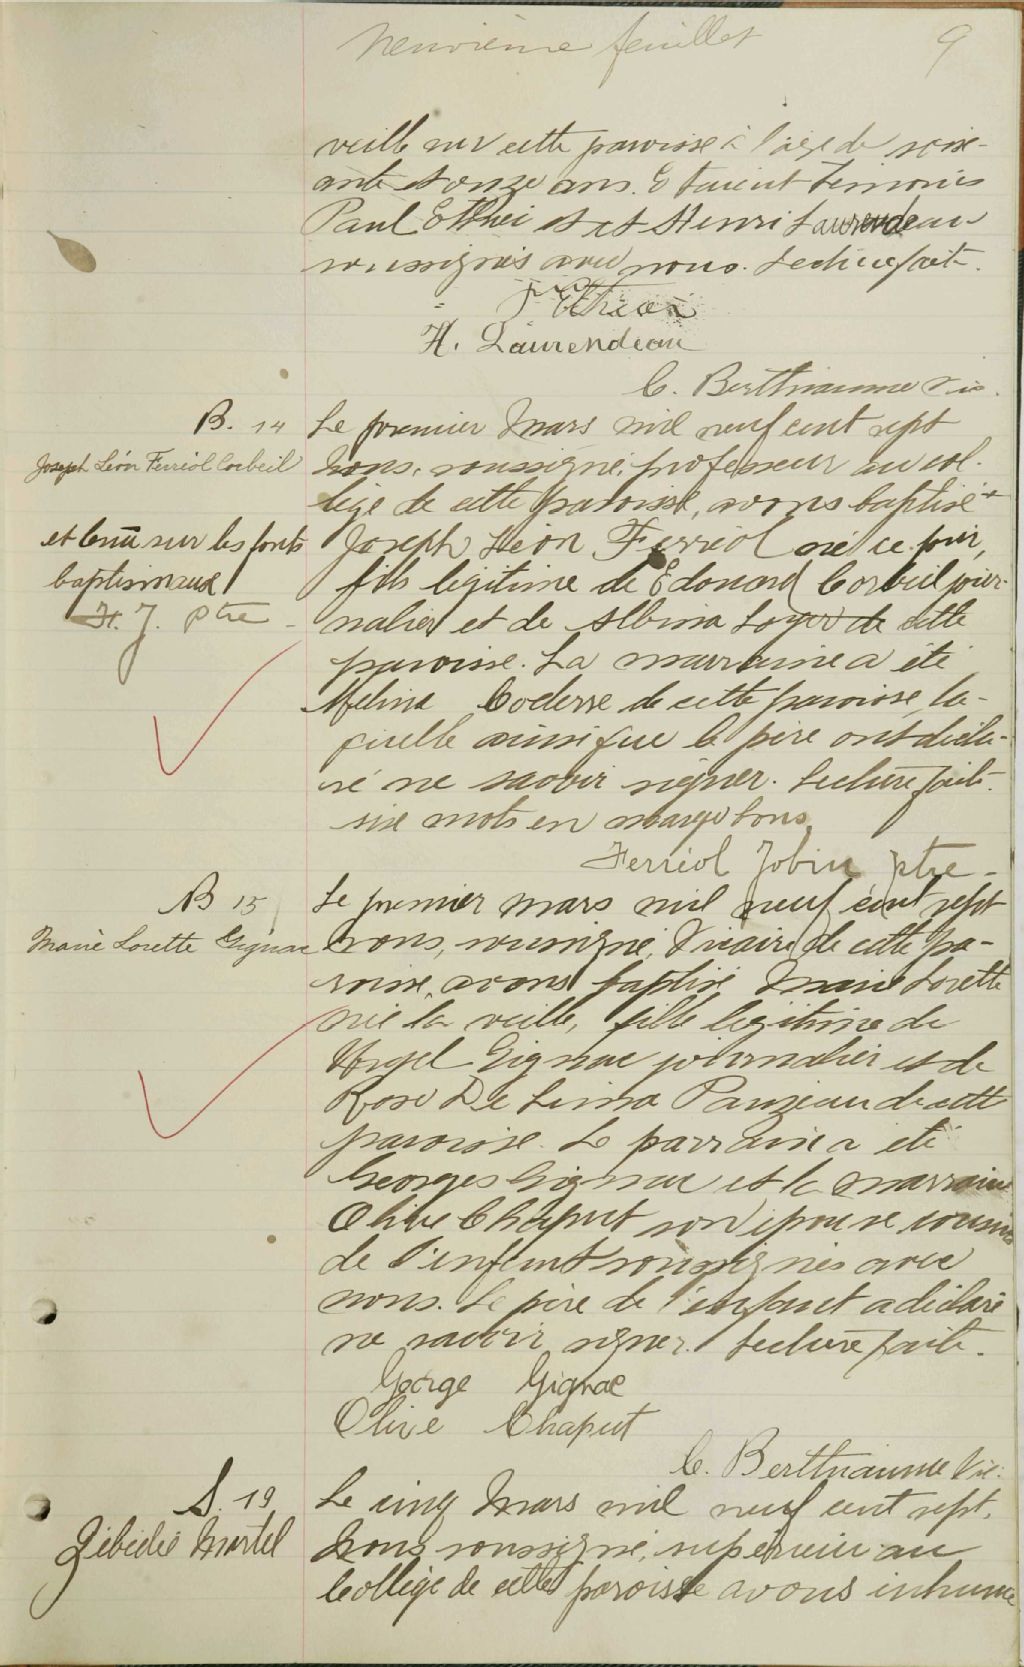 neuvième feuillet 9
veille sur cette paroisse à l'âge de soix-
ante et onze ans. Etaient témoins
Paul Ethier et Henri Laurendeau
soussignés avec nous. Lecture faite.
P. Ethier
H. Laurendeau
C. Berthiaume Vic.
B. 14
Joseph Léon Ferriol Corbeil
et tenu sur les fonts
baptismaux
F. J. ptre
Le premier Mars mil neuf cent sept
Nous, soussigné, professeur au col-
lège de cette paroisse, avons baptisé +
Joseph Léon Ferriol né ce jour,
fils légitime de Edouard Corbeil jour-
nalier et de Albina Loyer de cette
paroisse. La marraine a été
Mélina Coderre de cette paroisse, la-
quelle ainsi que le père ont décla-
ré ne savoir signer. Lecture faite.
six mots en marge bons
Ferréol Jobin ptre -
B 15
Marie Lorette Gignac
Le premier mars mil neuf cent sept
nous, soussigné, Vicaire de cette pa-
roisse, avons baptisé Marie Lorette
née la veille, fille légitime de
Gignac journalier et de
Rose De Lima Pauzeau de cette
paroisse. Le parrain a été
Georges Gignac et la marraine
Olive Chaput son épouse cousins
de l'enfant soussignés avec
nous. Le père de l'enfant a déclaré
ne savoir signer. Lecture faite.
George Gignac
Olive Chaput
C. Berthiaume Vic.
S. 19
Zébédée Martel
Le cinq Mars mil neuf cent sept.
Nous soussigné, supérieur au
Collège de cette paroisse avons inhumé